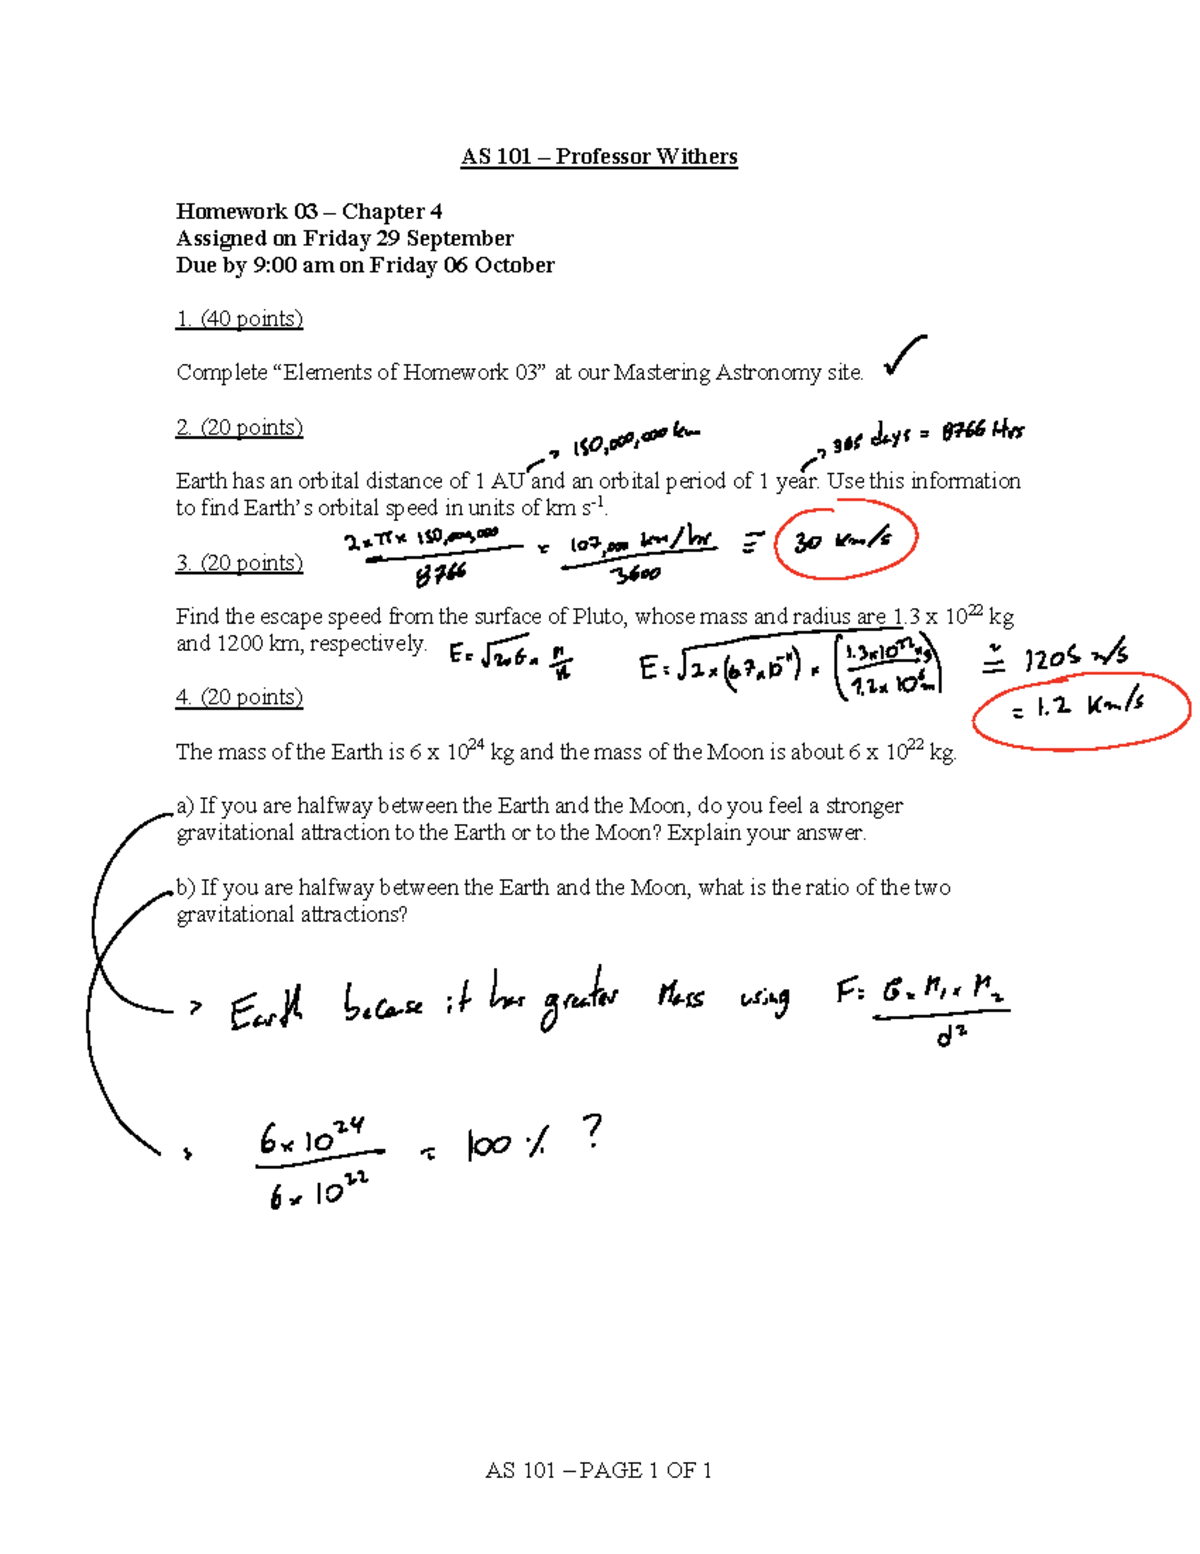 AS 101 – Professor Withers
Homework 03 – Chapter 4
Assigned on Friday 29 September
Due by 9:00 am on Friday 06 October
1. (40 points)
Complete “Elements of Homework 03” at our Mastering Astronomy site. ✓
2. (20 points)
→ 150,000,000 km
→ 365 days = 8766 Hrs
Earth has an orbital distance of 1 AU and an orbital period of 1 year. Use this information
to find Earth’s orbital speed in units of km s-1.
2 × π × 150,000,000 / 8766 = 107,000 km/hr / 3600 = 30 Km/s
3. (20 points)
Find the escape speed from the surface of Pluto, whose mass and radius are 1.3 x 10^22 kg
and 1200 km, respectively.
E = √2 × G ×
E = √2 × (6.7 × 10^-11) × (1.3 × 10^22 kg / 1.2 × 10^6 m) ≅ 1205 m/s
= 1.2 Km/s
4. (20 points)
The mass of the Earth is 6 x 10^24 kg and the mass of the Moon is about 6 x 10^22 kg.
a) If you are halfway between the Earth and the Moon, do you feel a stronger
gravitational attraction to the Earth or to the Moon? Explain your answer.
b) If you are halfway between the Earth and the Moon, what is the ratio of the two
gravitational attractions?
→ Earth because it has greater Mass using F = G × M1 × M2 / d^2
→ 6 × 10^24 / 6 × 10^22 = 100 % ?
AS 101 – PAGE 1 OF 1